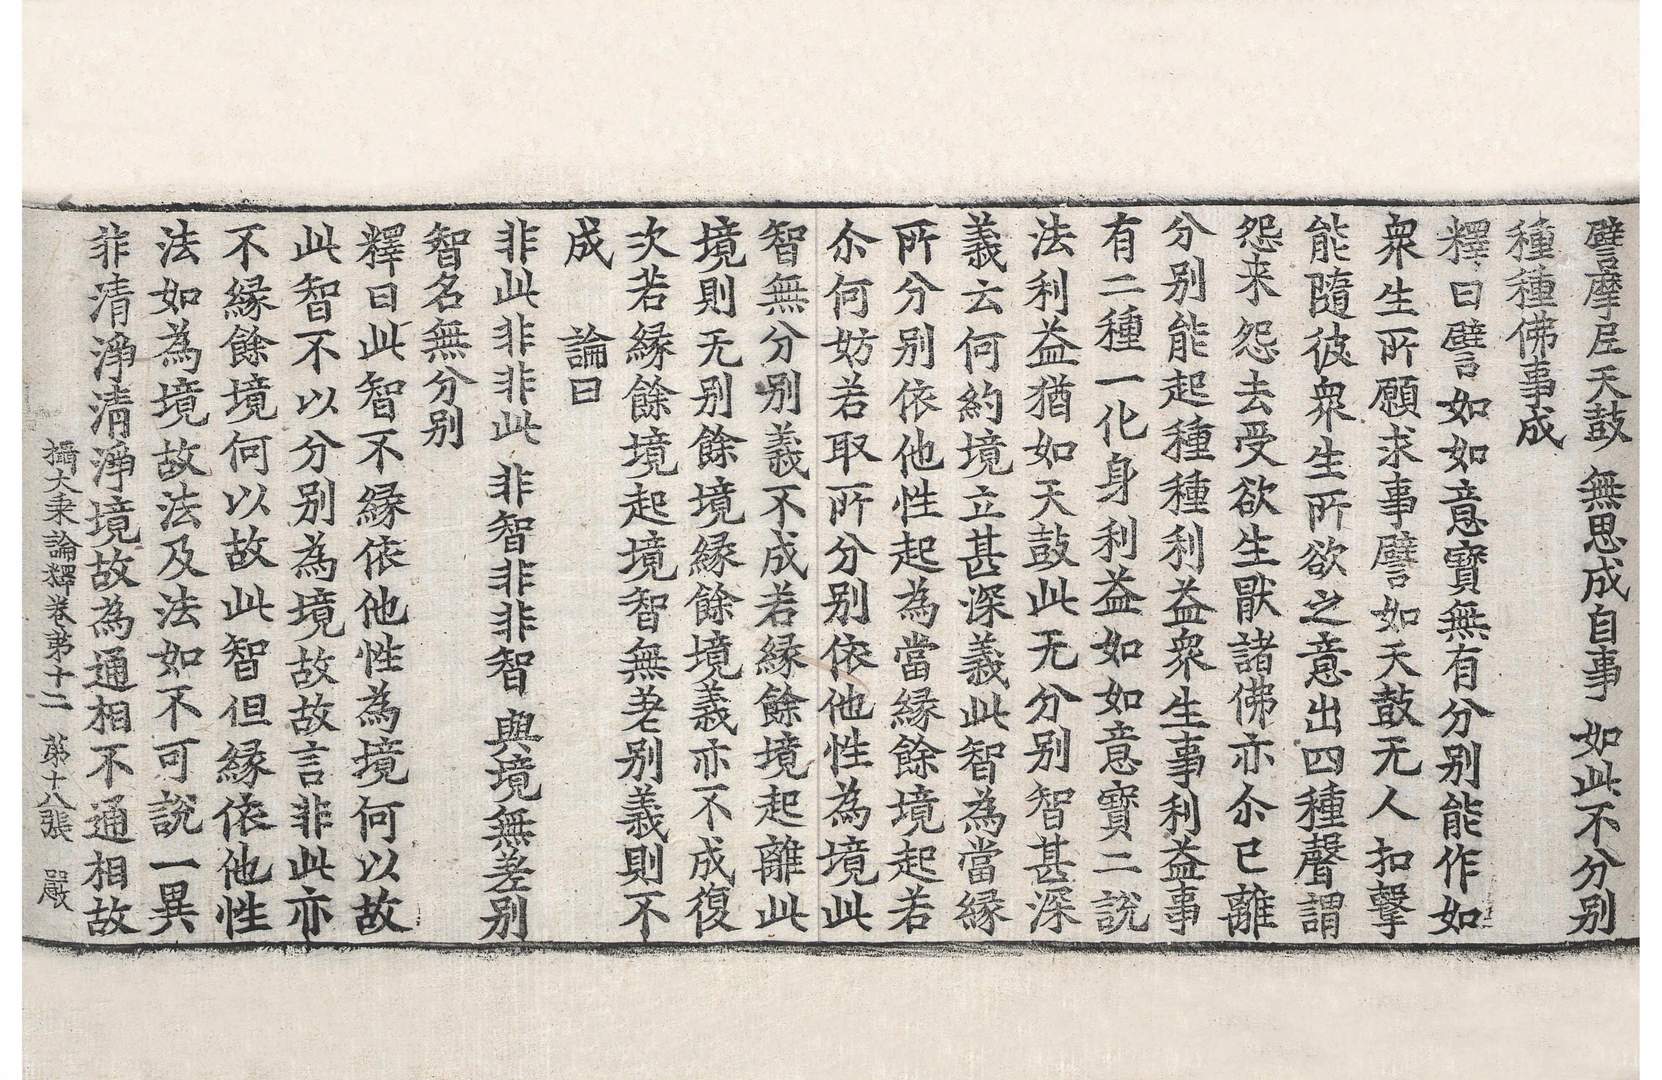 譬摩尼天鼓 無思成自事 如此不分別
種種佛事成
釋曰譬如如意寶無有分別能作如
衆生所願求事譬如天鼓无人扣擊
能隨彼衆生所欲之意出四種聲謂
怨来怨去受欲生猒諸佛亦尒已離
分別能起種種利益衆生事利益事
有二種一化身利益如如意寶二說
法利益猶如天鼓此无分別智甚深
義云何約境立甚深義此智為當縁
所分別依他性起為當縁餘境起若
尒何妨若取所分別依他性為境此
智無分別義不成若縁餘境起離此
境則无別餘境縁餘境義亦不成復
次若縁餘境起境智無差別義則不
成 論曰
非此非非此 非智非非智 與境無差別
智名無分別
釋曰此智不縁依他性為境何以故
此智不以分別為境故故言非此亦
不縁餘境何以故此智但縁依他性
法如為境故法及法如不可說一異
非清淨清淨境故為通相不通相故
攝大乗論釋卷苐十二 苐十八張 嚴